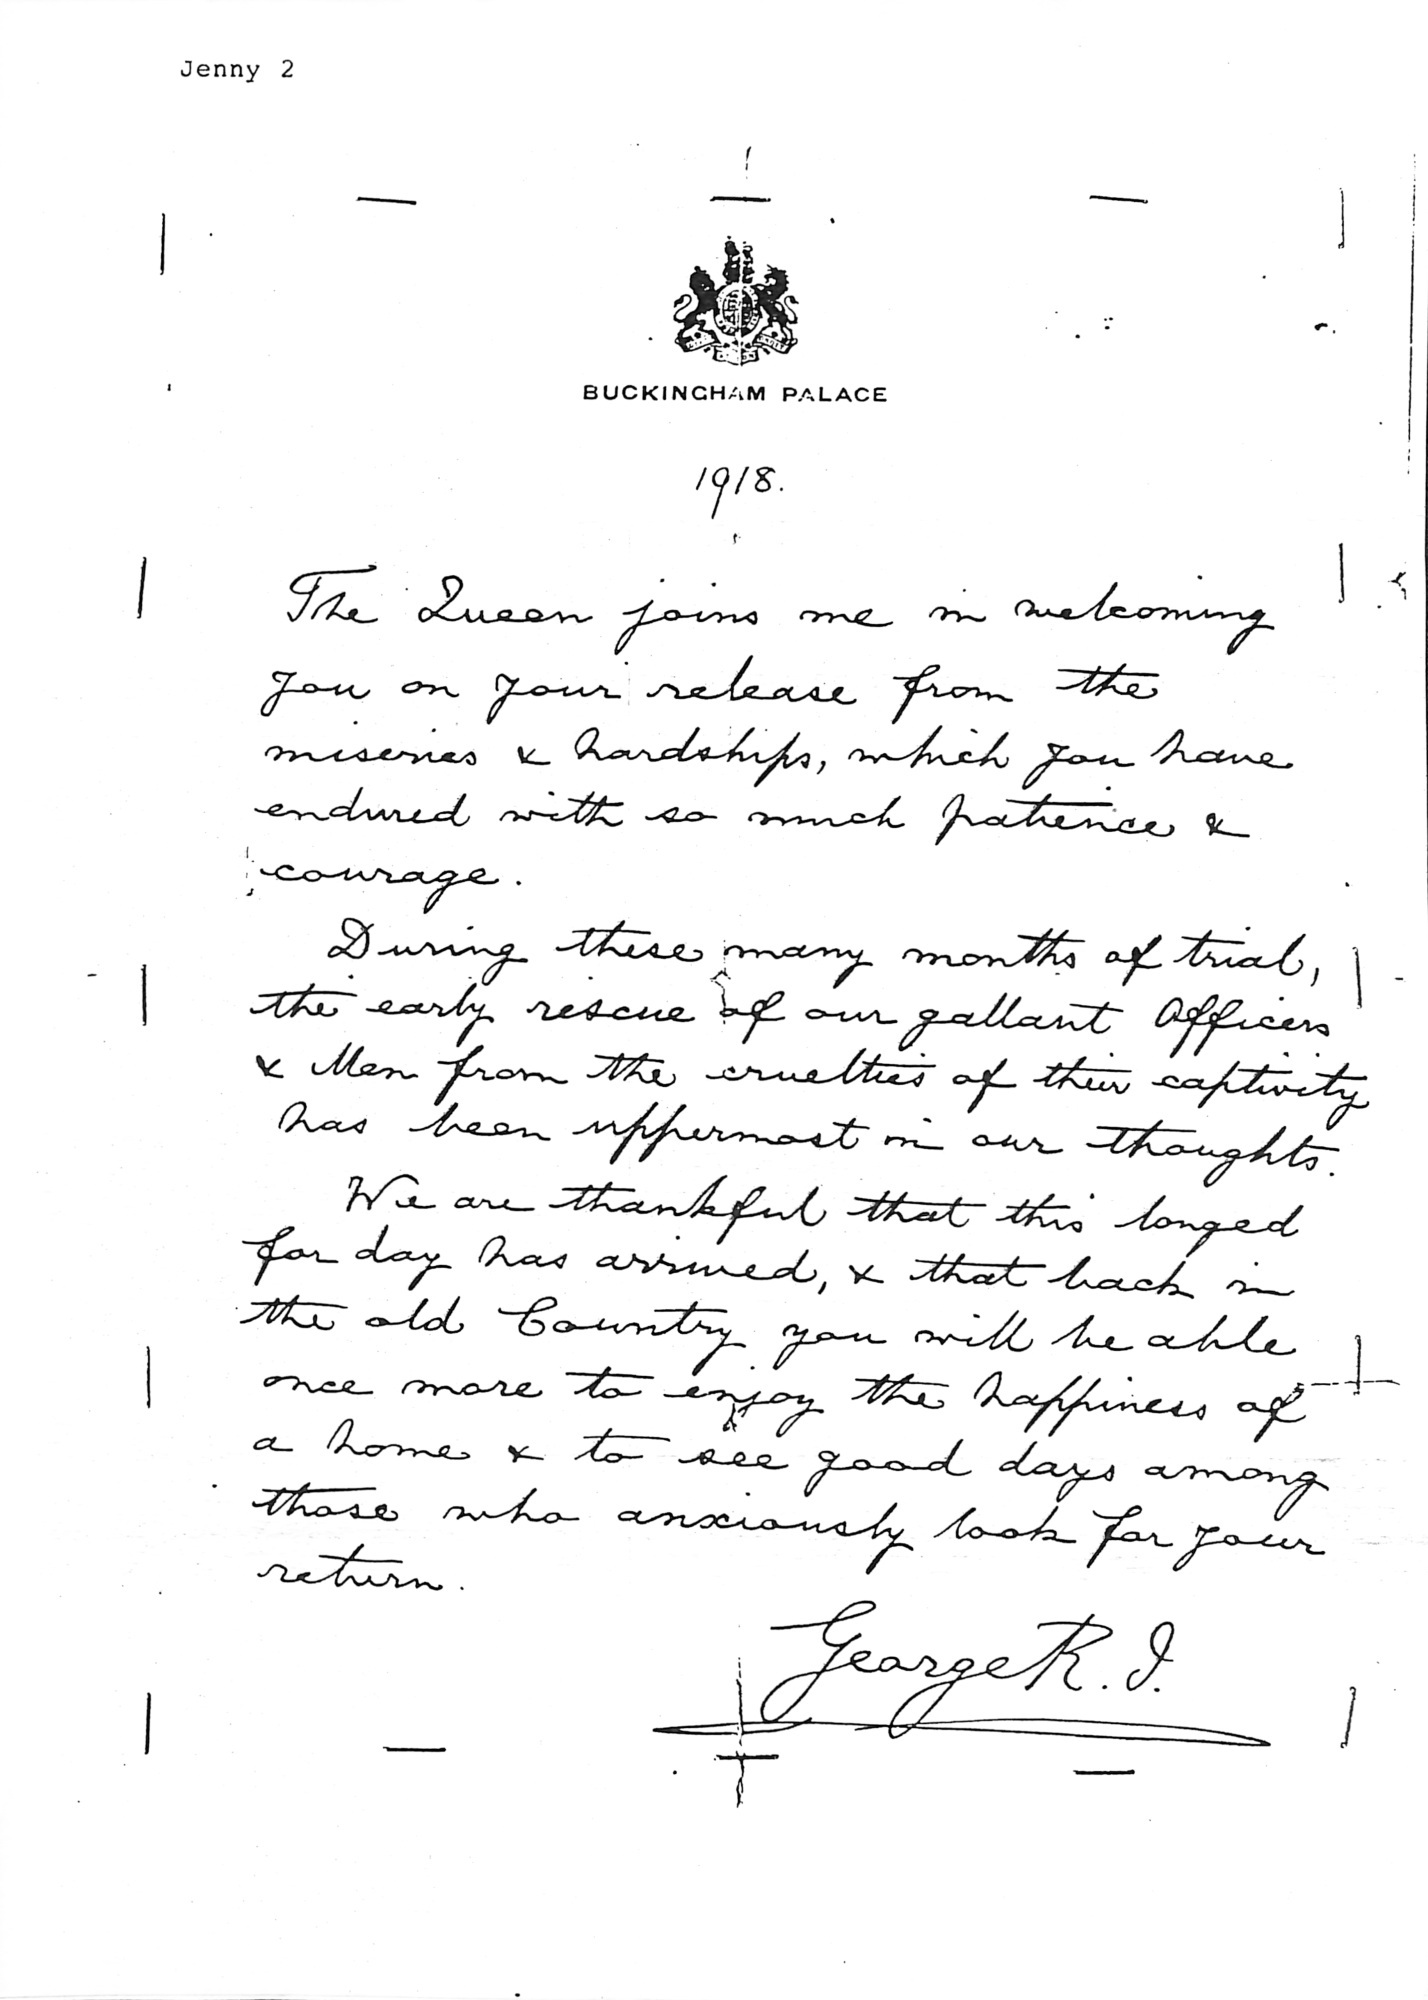 Jenny 2
BUCKINGHAM PALACE
1918.
The Queen joins me in welcoming
you on your release from the
miseries & hardships, which you have
endured with so much patience &
courage.
During these many months of trial,
the early rescue of our gallant Officers
& Men from the cruelties of their captivity
has been uppermost in our thoughts.
We are thankful that this longed
for day has arrived, & that back in
the old Country you will be able
once more to enjoy the happiness of
a home & to see good days among
those who anxiously look for your
return.
George R. I.